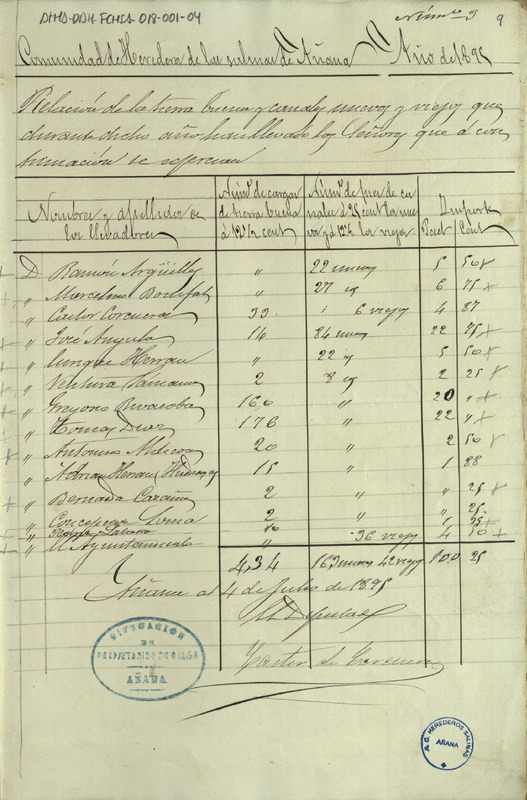 DIHS-DDH-FCHSA-018-001-04
Núm.º 3 9
Comunidad de Heredera de las salinas de Añana Año de 1895
Relación de la tierra buena y canales nuevos y viejos que
durante dicho año han llevado los Señores que á con
tinuación se refieren
Nombres y apellidos de los llevadores
Núm.º de cargas de tierra buena á 12½ cent
Núm.º de pies de canales á 25 cent los nuevos y á 12½ los viejos
Importe
Pset Cent
D. Ramón Argüelles " 22 nuevos 5 50
" Marcelino " 27 id 6 75
" Castor Corcuera 33 6 viejos 4 87
" José Angulo 14 84 nuevos 22 75
" Enrique Herran " 22 id 5 50
" Ventura 2 8 id 2 25
" Gregorio 160 " 20 "
" Tomas Diaz 176 " 22 "
" Antonio 20 " 2 50
" Adrian Herran 15 " 1 88
" Bernada 2 " " 25
" Concepcion Loma 2 " " 25
" 10 " 1 25
" El Ayuntamiento " 36 viejos 4 50
434 163 nuevos 42 viejos 100 25
Añana at 4 de Julio de 1895
El Diputado
Castor de Corcuera
DIPUTACIÓN
DE
PROPIETARIOS DE SALINAS
AÑANA
A.C. HEREDEROS SALINAS
AÑANA